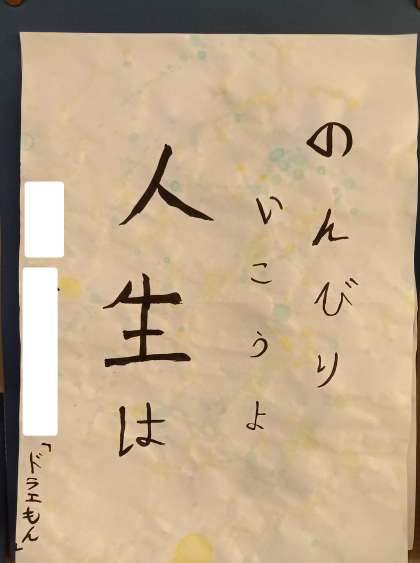 のんびり
いこうよ
人生は
「ドラえもん」